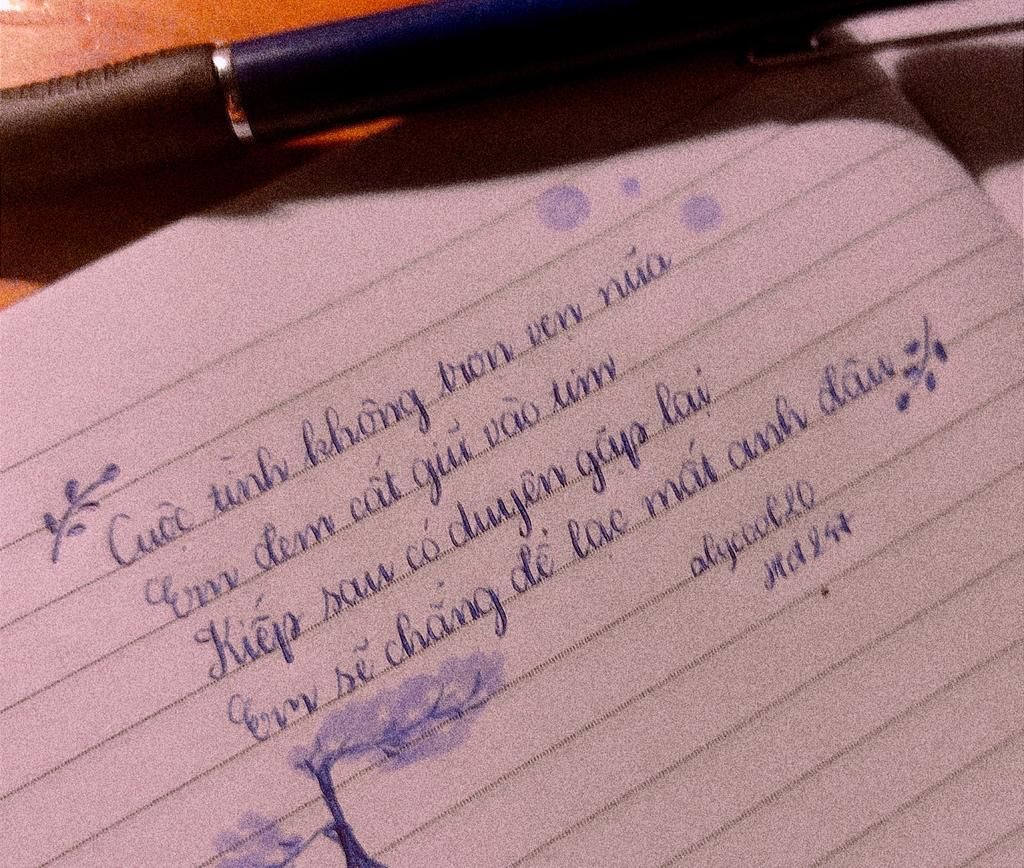 Cuộc tình không trọn vẹn nữa
Em đem cất giữ vào tim
Kiếp sau có duyên gặp lại
Em sẽ chẳng để lạc mất anh đâu